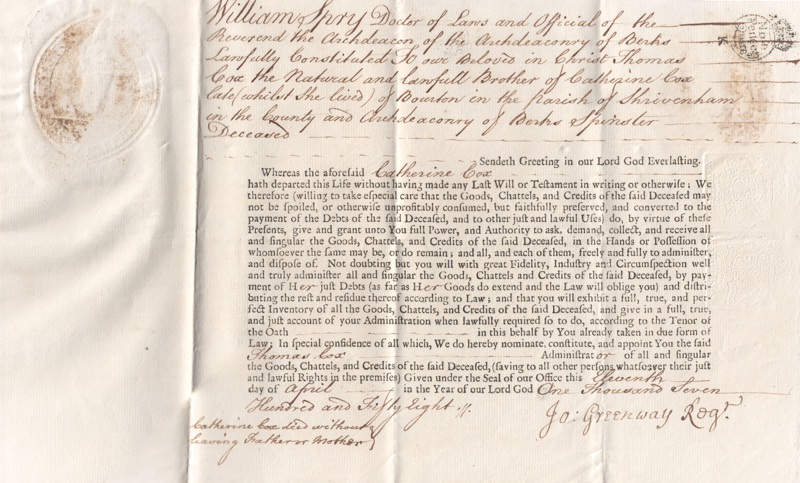 William Spry Doctor of Laws and Official of the
Reverend the Archdeacon of the Archdeaconry of Berks
Lawfully Constituted To our Beloved in Christ Thomas
Cox the Natural and Lawfull Brother of Catherine Cox
late (whilst She lived) of Bourton in the Parish of Shrivenham
in the County and Archdeaconry of Berks Spinster
Deceased
Sendeth Greeting in our Lord God Everlaſting.
Whereas the aforeſaid Catherine Cox
hath departed this Life without having made any Laſt Will or Teſtament in writing or otherwiſe; We
therefore (willing to take eſpecial care that the Goods, Chattels, and Credits of the ſaid Deceaſed may
not be ſpoiled, or otherwiſe unprofitably conſumed, but faithfully preſerved, and converted to the
payment of the Debts of the ſaid Deceaſed, and to other juſt and lawful Uſes) do, by virtue of theſe
Preſents, give and grant unto You full Power, and Authority to ask, demand, collect, and receive all
and ſingular the Goods, Chattels, and Credits of the ſaid Deceaſed, in the Hands or Poſſeſſion of
whomſoever the ſame may be, or do remain; and all, and each of them, freely and fully to adminiſter,
and diſpoſe of. Not doubting but you will with great Fidelity, Induſtry and Circumſpection well
and truly adminiſter all and ſingular the Goods, Chattels and Credits of the ſaid Deceaſed, by pay-
ment of Her juſt Debts (as far as Her Goods do extend and the Law will oblige you) and diſtri-
buting the reſt and reſidue thereof according to Law; and that you will exhibit a full, true, and per-
fect Inventory of all the Goods, Chattels, and Credits of the ſaid Deceaſed, and give in a full, true,
and juſt account of your Adminiſtration when lawfully required ſo to do, according to the Tenor of
the Oath in this behalf by You already taken in due form of
Law; In ſpecial confidence of all which, We do hereby nominate, conſtitute, and appoint You the ſaid
Thomas Cox Adminiſtrator of all and ſingular
the Goods, Chattels, and Credits of the ſaid Deceaſed, (ſaving to all other perſons whatſoever their juſt
and lawful Rights in the premiſes) Given under the Seal of our Office this Eleventh
day of April in the Year of our Lord God One Thousand Seven
Hundred and Fifty Eight
Jo: Greenway Regr.
Catherine Cox died without
leaving Father or Mother